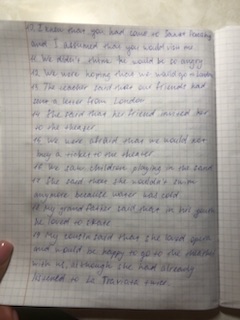 I knew that you had come to
and I assumed that you would
11 We didn't think he would be so angry
12 We were hoping that we would
13 The teacher said that our friends had
sent a letter from London
14 She said that her friend invited her
to the theater
15 We were afraid that we would not
buy a ticket to the theater
16 We saw children playing in the sand
17 She said that she wouldn't swim
anymore, because water was cold
18 My grandfather said that in his youth
he loved to skate
19 My cousin said that she loved
and would be happy to go to the theater
with us, although she had already
listened to be Traviata twice.